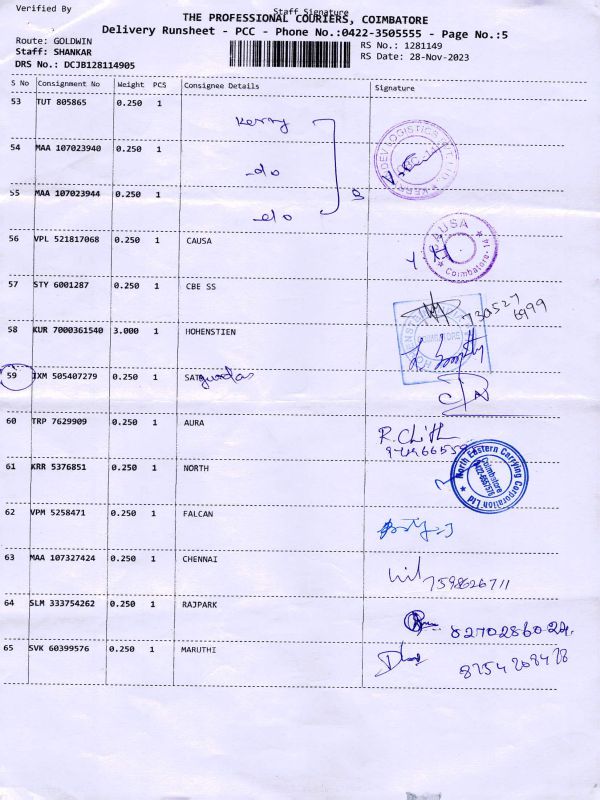 Verified By
Staff Signature
THE PROFESSIONAL COURIERS, COIMBATORE
Delivery Runsheet - PCC - Phone No.:0422-3505555 - Page No.:5
Route: GOLDWIN
RS No.: 1281149
Staff: SHANKAR
RS Date: 28-Nov-2023
DRS No.: DCJB128114905
S No Consignment No Weight PCS Consignee Details Signature
53 TUT 805865 0.250 1
Kerry
54 MAA 107023940 0.250 1
-do
55 MAA 107023944 0.250 1
-do
56 VPL 521817068 0.250 1 CAUSA
CAUSA
Coimbatore-14
57 STY 6001287 0.250 1 CBE SS
730527
6999
58 KUR 7000361540 3.000 1 HOHENSTIEN
59 IXM 505407279 0.250 1 SAT
60 TRP 7629909 0.250 1 AURA
R. Chith
61 KRR 5376851 0.250 1 NORTH
North Eastern Carrying Corporation Ltd
Coimbatore
62 VPM 5258471 0.250 1 FALCAN
63 MAA 107327424 0.250 1 CHENNAI
7598626711
64 SLM 333754262 0.250 1 RAJPARK
8270286024
65 SVK 60399576 0.250 1 MARUTHI
8754208478